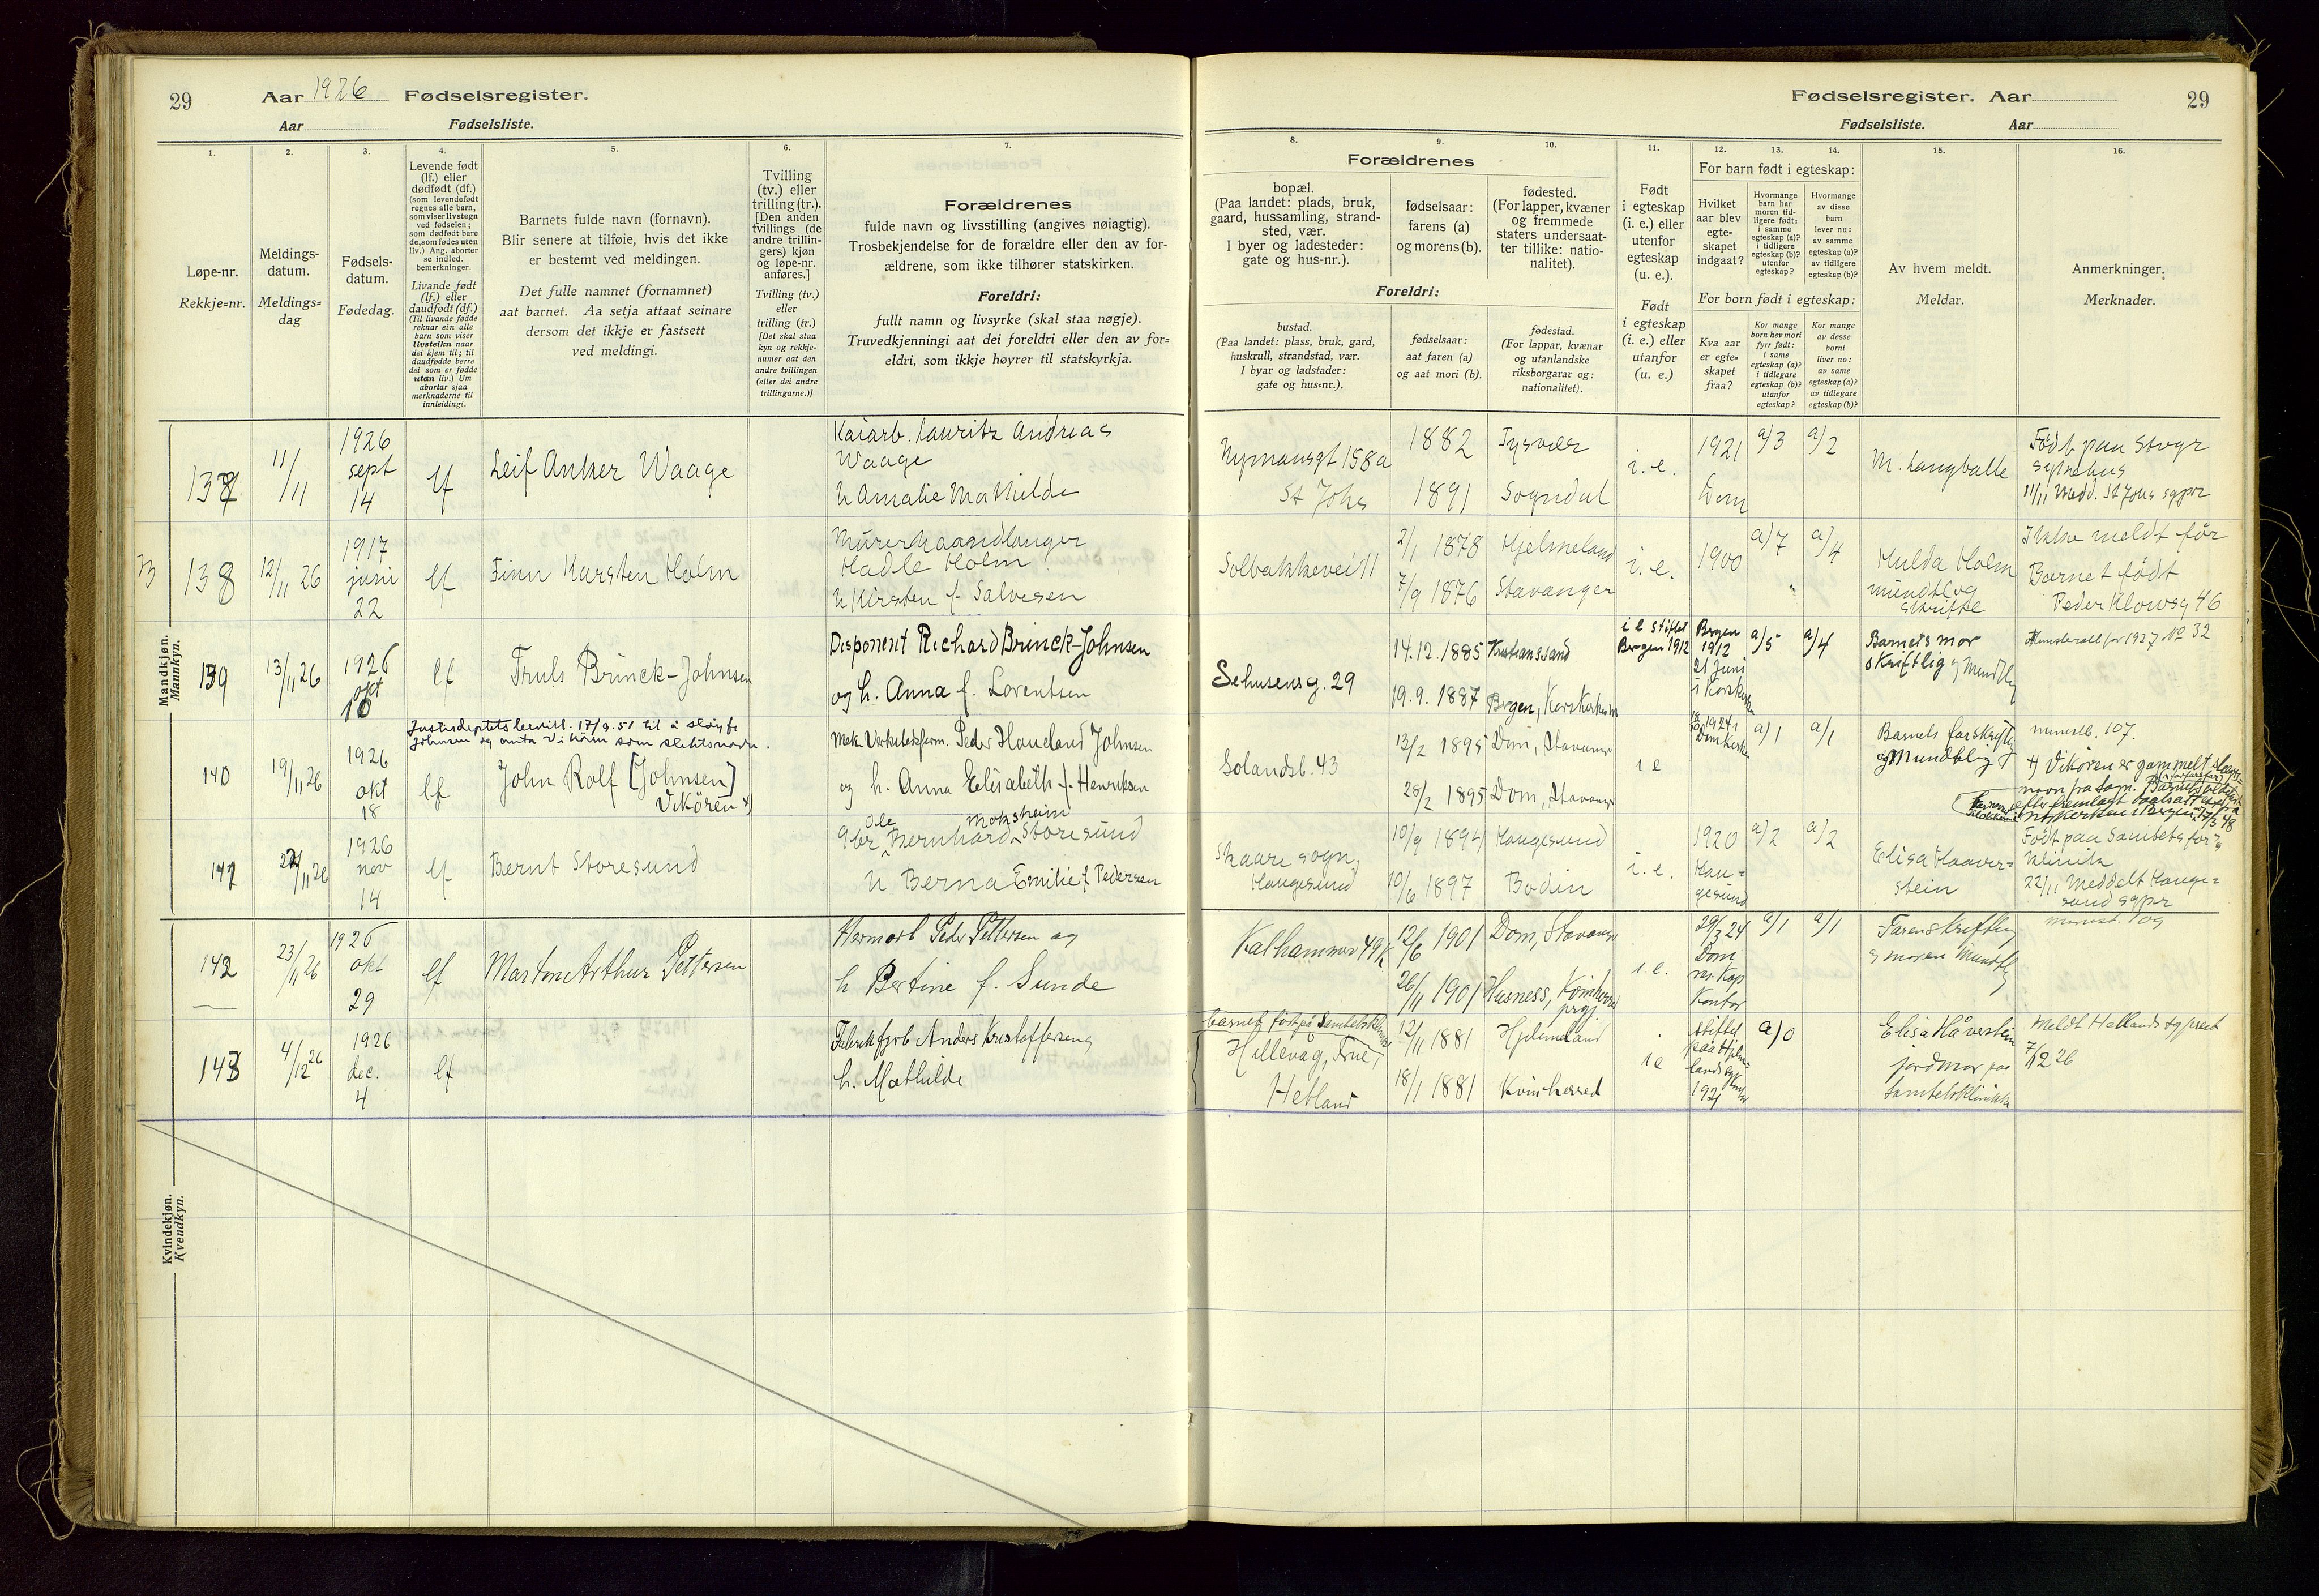 29
Aar 1926 Fødselsregister.
Aar Fødselsliste.
Fødselsregister. Aar
29
Fødselsliste. Aar
1.
Løpe-nr.
Rekkje=nr.
2.
Meldings-
datum.
Meldings=
dag
3.
Fødsels-
datum.
Fødedag.
4.
Levende født
(lf.) eller
dødfødt (df.)
(som levendefødt
regnes alle barn,
som viser livstegn
ved fødselen;
som dødfødt bare
de, som fødes uten
liv.) Ang. aborter
se indled.
bemerkninger.
Livande født
(lf.) eller
daudfødt (df.)
(Til livande fødde
reknar ein alle
barn som viser
livsteikn naar
dei kjem til; til
daudfødde berre
dei som er fødde
utan liv.) Um
abortar sjaa
merknaderne til
innleidingi.
5.
Barnets fulde navn (fornavn).
Blir senere at tilføie, hvis det ikke
er bestemt ved meldingen.
Det fulle namnet (fornamnet)
aat barnet. Aa setja attaat seinare
dersom det ikkje er fastsett
ved meldingi.
6.
Tvilling
(tv.) eller
trilling (tr.).
[Den anden
tvillings (de
andre trillin-
gers) kjøn
og løpe-nr.
anføres.]
Tvilling (tv.)
eller
trilling (tr.)
[Det skal staa
kyn og rekkje-
numer aat den
andre tvillingen
(eller dei andre
trillingarne.)]
7.
Forældrenes
fulde navn og livsstilling (angives nøiagtig).
Trosbekjendelse for de forældre eller den av for-
ældrene, som ikke tilhører statskirken.
Foreldri:
fullt namn og livsyrke (skal staa nøgje).
Truvedkjenningi aat dei foreldri eller den av for=
eldri, som ikkje høyrer til statskyrkja.
8.
Forældrenes
bopæl.
(Paa landet: plads, bruk,
gaard, hussamling, strand-
sted, vær.
I byer og ladesteder:
gate og hus-nr.).
Foreldri:
bustad.
(Paa landet: plass, bruk, gard,
huskrull, strandstad, vær.
I byar og ladstader:
gate og hus=nr.).
9.
fødselsaar:
farens (a)
og morens (b).
fødselsaar:
aat faren (a)
og aat mori (b).
10.
fødested.
(For lapper, kvæner
og fremmede
staters undersaat-
ter tillike: natio-
nalitet).
fødestad.
(For lappar, kvænar
og utanlandske
riksborgarar og:
nationalitet).
11.
Født
i egteskap
(i. e.) eller
utenfor
egteskap
(u. e.).
Født
i egteskap
(i. e.) eller
utanfor
(u. e.)
12.
For barn født i egteskap:
Hvilket
aar blev
egte-
skapet
indgaat?
For born født i egteskap:
Kva aar
er egte=
skapet
fraa?
13.
Hvormange
barn har
moren tid-
ligere født:
i samme
egteskap (a)?
i tidligere
egteskap (b)?
utenfor
egteskap?
Kor mange
born hev mori
fyrr født:
i same
egteskap (a)?
i tidlegare
egteskap (b)?
utanfor
egteskap?
14.
Hvormange
av disse
barn
lever nu:
av samme
egteskap (a)?
av tidligere
egteskap (b)?
Kor mange
av desse
borni
liver no:
av same
egteskap (a)?
av tidlegare
egteskap (b)?
15.
Av hvem meldt.
Meldar.
16.
Anmerkninger.
Merknader.
Mandkjøn.
Mannkyn.
137 11/11 1926 sept 14 lf Leif Anker Waage
Kaiarb. Lauritz Andreas
Waage
h Amalie Mathilde
Nymansgt 158a
St Johs
1882 Tysvær
1891 Sogndal
i. e. 1921 Dom a/3 a/2
M. Langballe
Født paa Stvgr
sykehus
11/11 Medd. St Johs sgpr
138 12/11 26 1917 juni 22 lf Finn Karsten Holm
Murerhaandlanger
Hadle Holm
h Kirsten f. Salvesen
Solbakkevei 11
2/1 1878 Hjelmeland
7/9 1876 Stavanger
i. e. 1900 a/7 a/4
Hulda Holm
mundtl og
skriftl
Ikke meldt før
Barnet født
Peder Klowsg 46
139 13/11 26 1926 okt 10 lf Truls Brinck-Johnsen
Disponent Richard Brinck-Johnsen
og h. Anna f. Lorentsen
Sehusensg. 29
14.12.1885 Kristianssand
19.9.1887 Bergen, Korskirken
i e stiftet
Bergen 1912
Bergen
1912
21 Juni
i Korskirken
a/5 a/4
Barnets mor
skriftlig og Mundtlig
Ministerialb for 1927 No 32
Justisdeptets bevill. 17/9.51 til å sløyfe
Johnsen og anta Vikören som slektsnavn.
140 19/11 26 1926 okt 18 lf John Rolf [Johnsen]
Vikören x)
Mek. Verkstedform. Peder Haueland Johnsen
og h. Anna Elisabeth f. Henriksen
Solandsb. 43
13/2 1895 Dom, Stavanger
28/2 1895 Dom, Stavanger
i e
1924
Domkirke
a/1 a/1
Barnets far skriftlig
og Mundtlig
minstb. 107.
x) Vikören er gammelt slegts-
navn fra
17/3 48
141 22/11 26 1926 nov 14 lf Bernt Storesund
Ole Moksheim
Bernhard Storesund
h Berna Emilie f Pedersen
Skaare sogn,
Haugesund
10/9 1894 Haugesund
10/6 1897 Bodin
i. e. 1920
Hau-
gesund
a/2 a/2
Elisa Haaver-
stein
Født paa Sanitetsfor's
klinik
22/11 Meddelt Hauge=
sund sgpr
142 23/11 26 1926 okt 29 lf Marton Arthur Pettersen
Hermarb Peder Pettersen og
h Bertine f. Sunde
Kalhammer 49k
12/6 1901 Dom, Stavanger
26/11 1901 Husness, Kvinherred
prgj
i. e.
29/3 24
Dom
res. Kap
Kontor
a/1 a/1
Faren skriftlig
og moren Mundtlig
Kvindekjøn.
Kvendkyn.
143 4/12 26 1926 dec. 4 lf
Fabrikkarb Anders Kristoffersen og
h. Mathilde
barnet født på Sanitetsklinikken
Hillevåg, Frue,
Hetland
12/11 1881 Hjelmeland
18/1 1881 Kvinherred
i e
stiftet
paa Hjelme-
land
1921
a/0
Elisa Håverstein
jordmor paa
Sanitetsklinikk
Meldt Hetlands sgprest
7/12 26